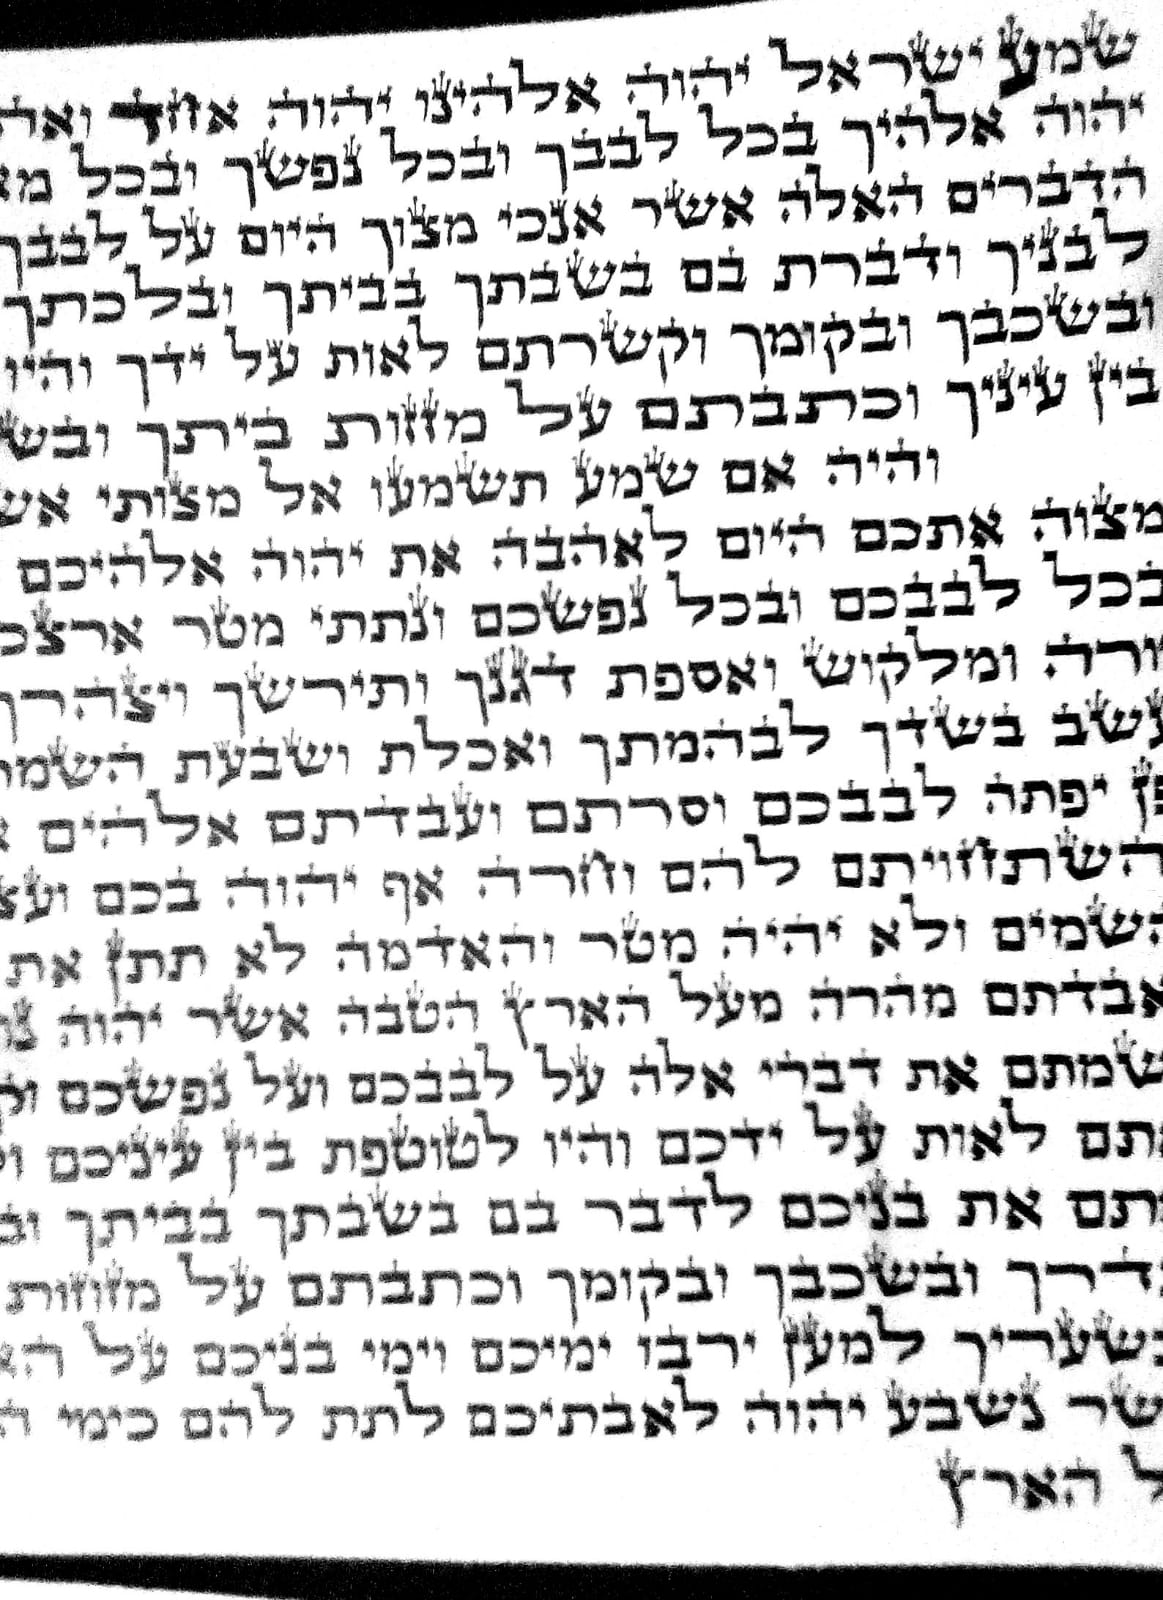 שמע ישראל יהוה אלהינו יהוה אחד
יהוה אלהיך בכל לבבך ובכל נפשך ובכל
הדברים האלה אשר אנכי מצוך היום על לבבך
לבניך ודברת בם בשבתך בביתך ובלכתך
ובשכבך ובקומך וקשרתם לאות על ידך והיו
בין עיניך וכתבתם על מזזות ביתך
והיה אם שמע תשמעו אל מצותי
מצוה אתכם היום לאהבה את יהוה אלהיכם
בכל לבבכם ובכל נפשכם ונתתי מטר
ומלקוש ואספת דגנך ותירשך ויצהרך
עשב בשדך לבהמתך ואכלת ושבעת
פן יפתה לבבכם וסרתם ועבדתם אלהים
השתחויתם להם וחרה אף יהוה בכם
השמים ולא יהיה מטר והאדמה לא תתן את
אבדתם מהרה מעל הארץ הטבה אשר יהוה
שמתם את דברי אלה על לבבכם ועל נפשכם
לאות על ידכם והיו לטוטפת בין עיניכם
את בניכם לדבר בם בשבתך בביתך
ובשכבך ובקומך וכתבתם על מזוזות
למען ירבו ימיכם וימי בניכם על
נשבע יהוה לאבתיכם לתת להם כימי
הארץ